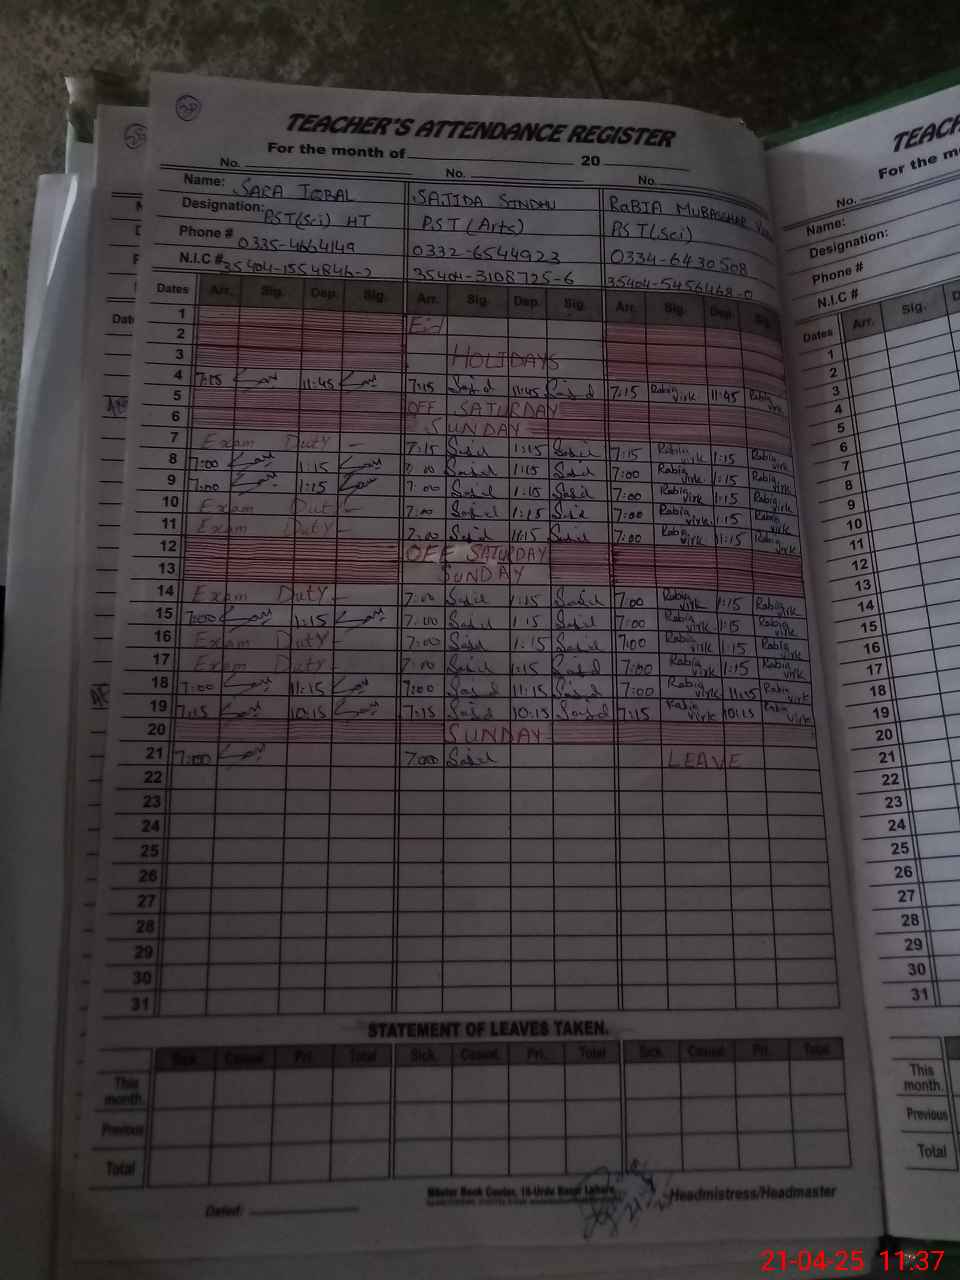 TEACHER'S ATTENDANCE REGISTER
For the month of 20
No. No. No.
Name: SARA IQBAL SAJIDA SINDHU RABIA MUBASSHAR
Designation: PST(Sci) HT PST (Arts) PST (Sci)
Phone # 0335-4664149 0332-6544923 0334-6430508
N.I.C # 35404-1554846-2 35404-3108725-6 35404-5456468-0
Dates Arr. Sig. Dep. Sig. Arr. Sig. Dep. Sig. Arr. Sig. Dep. Sig.
1 Eid
2
3 HOLIDAYS
4 7:15 11:45 7:15 Sajid 11:45 Sajid 7:15 Rabia Virk 11:45 Rabia Virk
5 OFF SATURDAY
6 SUNDAY
7 Exam Duty - 7:15 Sajid 1:15 Sajid 7:15 Rabia Virk 1:15 Rabia Virk
8 7:00 1:15 7:00 Sajid 1:15 Sajid 7:00 Rabia Virk 1:15 Rabia Virk
9 7:00 1:15 7:00 Sajid 1:15 Sajid 7:00 Rabia Virk 1:15 Rabia Virk
10 Exam Duty - 7:00 Sajid 1:15 Sajid 7:00 Rabia Virk 1:15 Rabia Virk
11 Exam Duty - 7:00 Sajid 11:15 Sajid 7:00 Rabia Virk 11:15 Rabia Virk
12 OFF SATURDAY
13 SUNDAY
14 Exam Duty - 7:00 Sajid 1:15 Sajid 7:00 Rabia Virk 1:15 Rabia Virk
15 7:00 1:15 7:00 Sajid 1:15 Sajid 7:00 Rabia Virk 1:15 Rabia Virk
16 Exam Duty - 7:00 Sajid 1:15 Sajid 7:00 Rabia Virk 1:15 Rabia Virk
17 Exam Duty - 7:00 Sajid 1:15 Sajid 7:00 Rabia Virk 1:15 Rabia Virk
18 7:00 11:15 7:00 Sajid 11:15 Sajid 7:00 Rabia Virk 11:15 Rabia Virk
19 7:15 10:15 7:15 Sajid 10:15 Sajid 7:15 Rabia Virk 10:15 Rabia Virk
20 SUNDAY
21 7:00 7:00 Sajid LEAVE
22
23
24
25
26
27
28
29
30
31
STATEMENT OF LEAVES TAKEN.
Sick. Casual Pri. Total Sick. Casual Pri. Total Sick. Casual Pri. Total
This month.
Previous
Total
Master Book Center, 18-Urdu Bazar Lahore
Headmistress/Headmaster
Dated:
TEACH
For the m
No.
Name:
Designation:
Phone #
N.I.C #
Dates Arr. Sig. D
1
2
3
4
5
6
7
8
9
10
11
12
13
14
15
16
17
18
19
20
21
22
23
24
25
26
27
28
29
30
31
This month.
Previous
Total
21-04-25 11:37